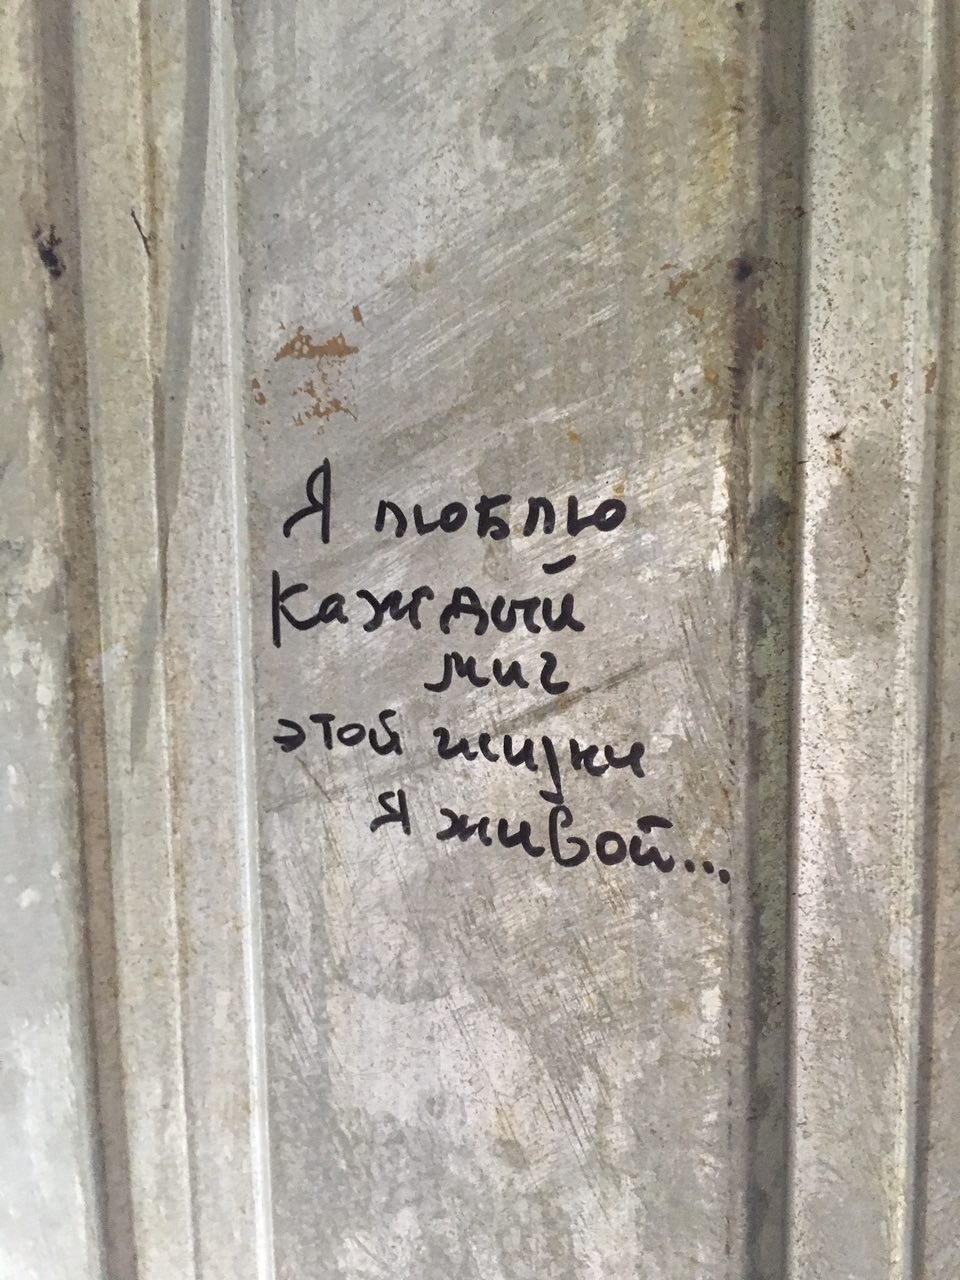 Я люблю
каждый
миг
этой жизни
Я живой...